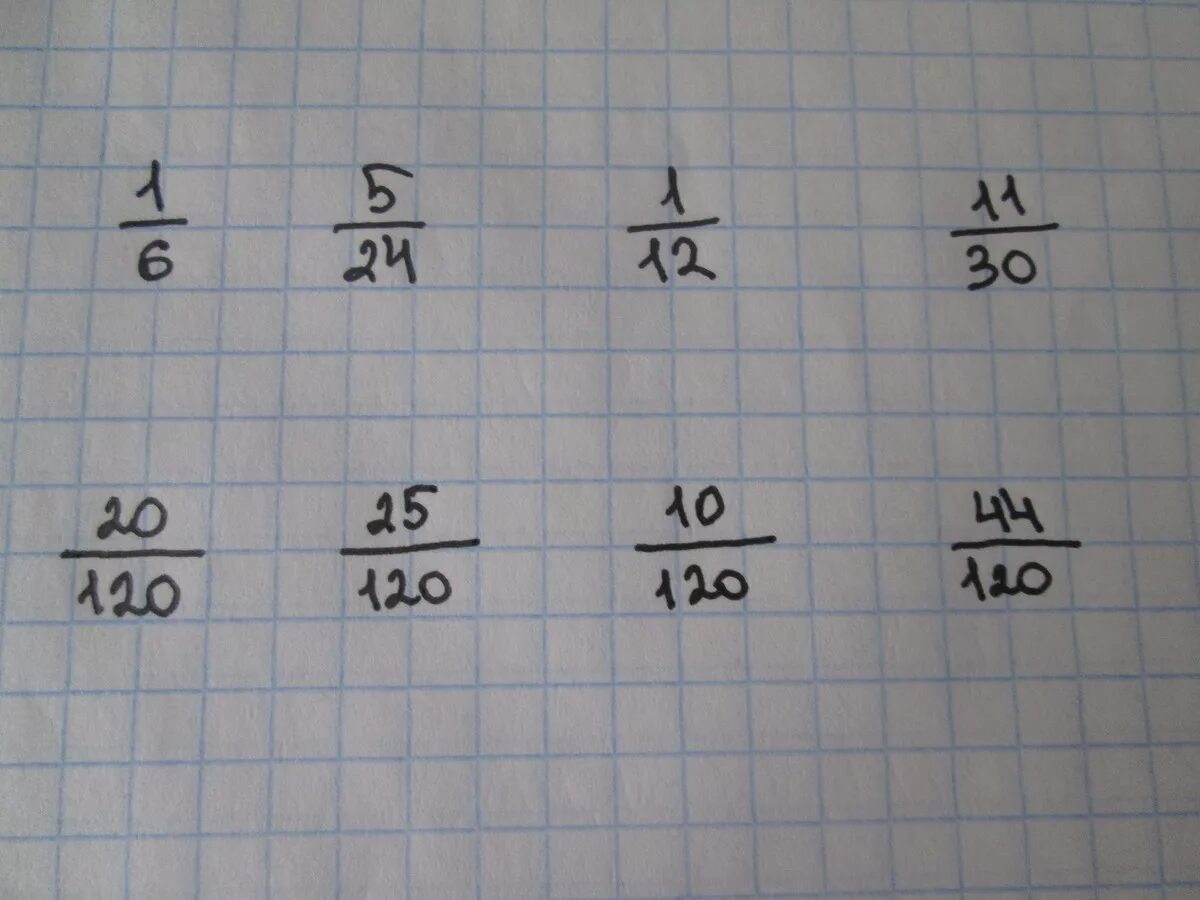 1/6 5/24 1/12 11/30
20/120 25/120 10/120 44/120